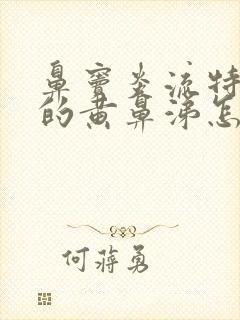 鼻窦炎流特
的黄鼻涕怎
何蒋勇